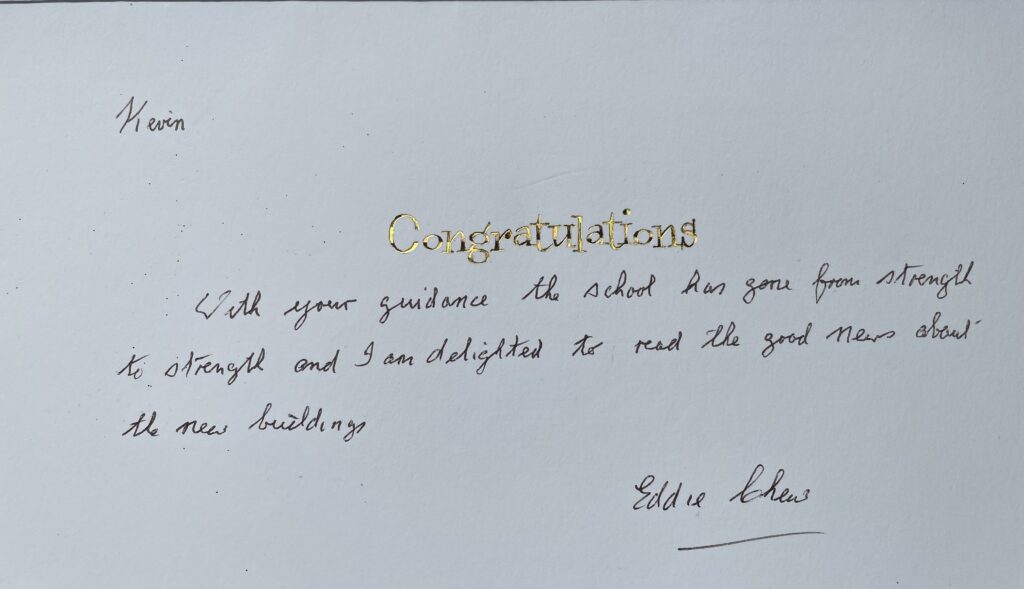 Kevin
Congratulations
With your guidance the school has gone from strength
to strength and I am delighted to read the good news about
the new buildings
Eddie